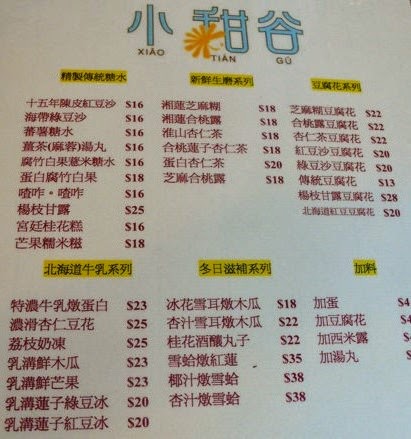 小甜谷
XIǍO TIÁN GǓ
精製傳統糖水
十五年陳皮紅豆沙 $16
海帶綠豆沙 $16
蕃薯糖水 $16
薑茶(麻蓉)湯丸 $16
腐竹白果薏米糖水 $16
蛋白腐竹白果 $18
喳咋。喳咋 $16
楊枝甘露 $25
宮廷桂花糕 $16
芒果糯米糍 $18
新鮮生磨系列
湘蓮芝麻糊 $18
湘蓮合桃露 $18
淮山杏仁茶 $18
合桃蓮子杏仁茶 $18
蛋白杏仁茶 $20
芝麻合桃露 $18
豆腐花系列
芝麻糊豆腐花 $22
合桃露豆腐花 $22
杏仁茶豆腐花 $22
紅豆沙豆腐花 $20
綠豆沙豆腐花 $20
傳統豆腐花 $13
楊枝甘露豆腐花 $28
北海道紅豆豆腐花 $20
北海道牛乳系列
特濃牛乳燉蛋白 $23
濃滑杏仁豆花 $25
荔枝奶凍 $25
乳溝鮮木瓜 $23
乳溝鮮芒果 $23
乳溝蓮子綠豆冰 $20
乳溝蓮子紅豆冰 $20
冬日滋補系列
冰花雪耳燉木瓜 $18
杏汁雪耳燉木瓜 $22
桂花酒釀丸子 $22
雪蛤燉紅蓮 $35
椰汁燉雪蛤 $38
杏汁燉雪蛤 $38
加料
加蛋
加豆腐花
加西米露
加湯丸